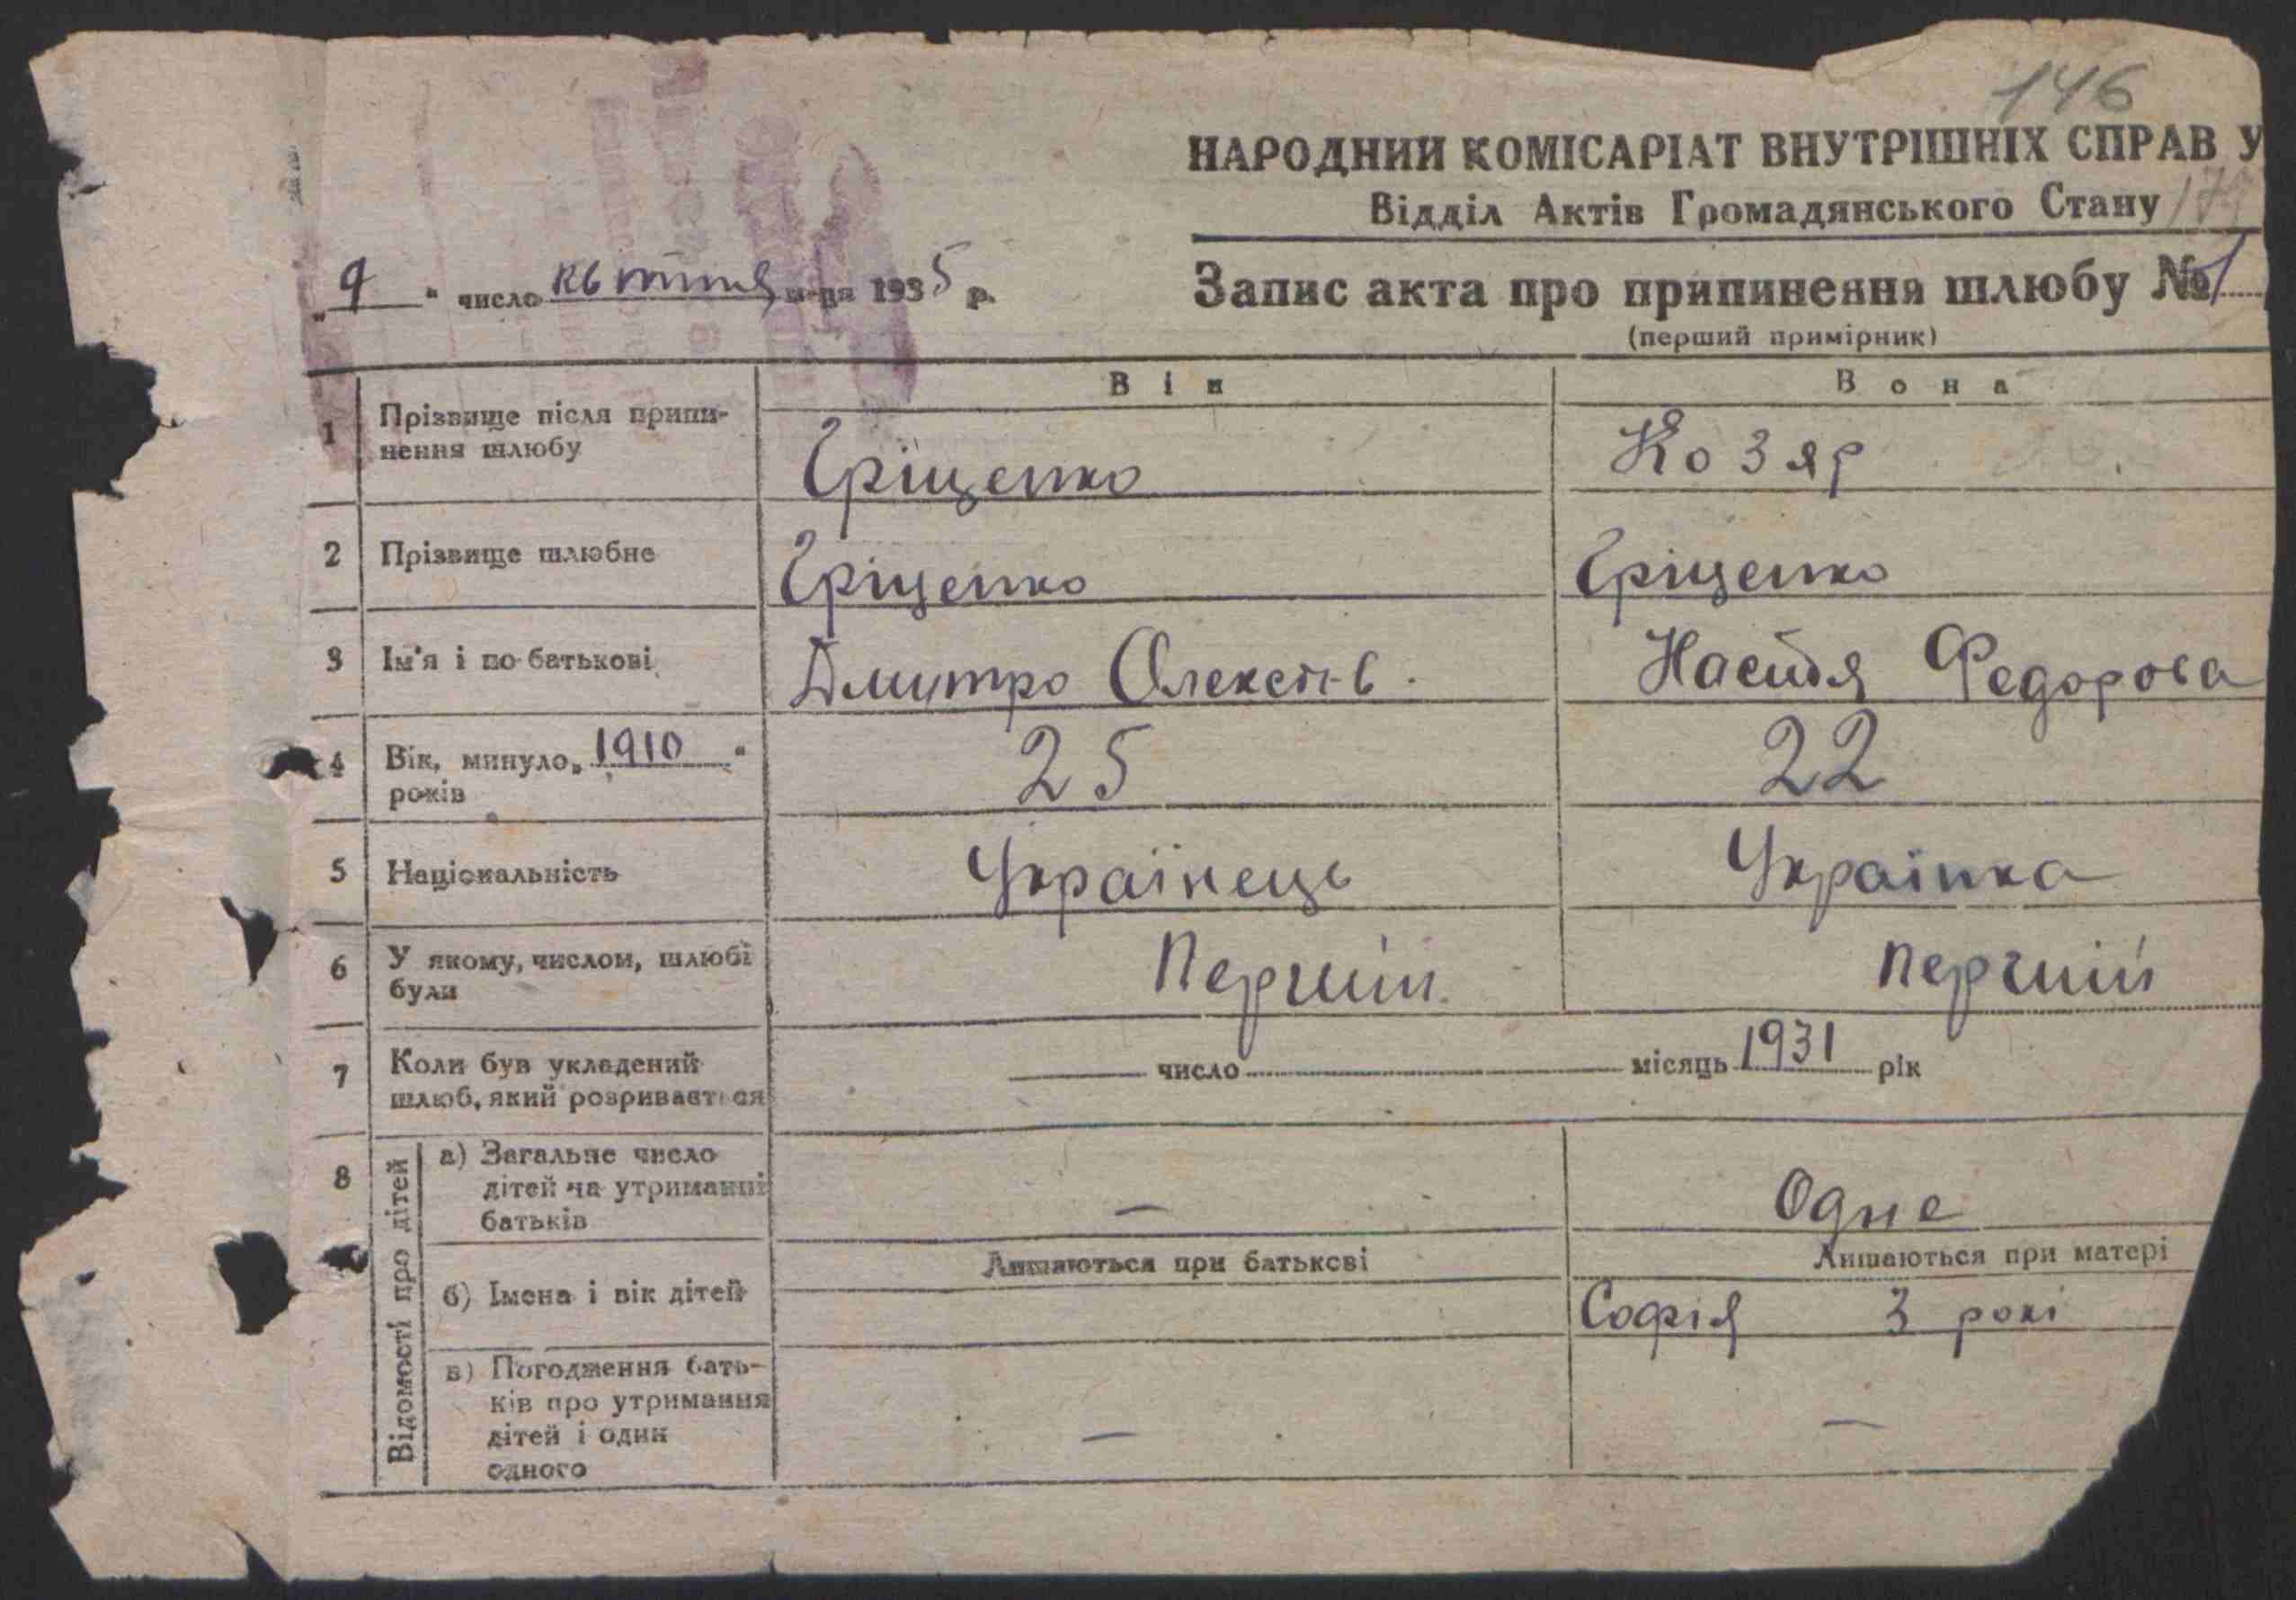 146
НАРОДНИЙ КОМІСАРІАТ ВНУТРІШНІХ СПРАВ У
Відділ Актів Громадянського Стану
„9“ число квітня м-ця 1935 р.
Запис акта про припинення шлюбу № 1
(перший примірник)
Він Вона
1 Прізвище після припи-
нення шлюбу Гріщенко Козяр
2 Прізвище шлюбне Гріщенко Гріщенко
3 Ім'я і по-батькові Дмитро Олексієв. Настя Федорова
4 Вік, минуло „1910“
років 25 22
5 Національність Українець Українка
6 У якому, числом, шлюбі
були Перший Перший
7 Коли був укладений
шлюб, який розривається число місяць 1931 рік
8 Відомості про дітей
а) Загальне число
дітей на утриманні
батьків — Одне
Лишаються при батькові Лишаються при матері
б) Імена і вік дітей Софія 3 рокі
в) Погодження бать-
ків про утримання
дітей і один
одного — —